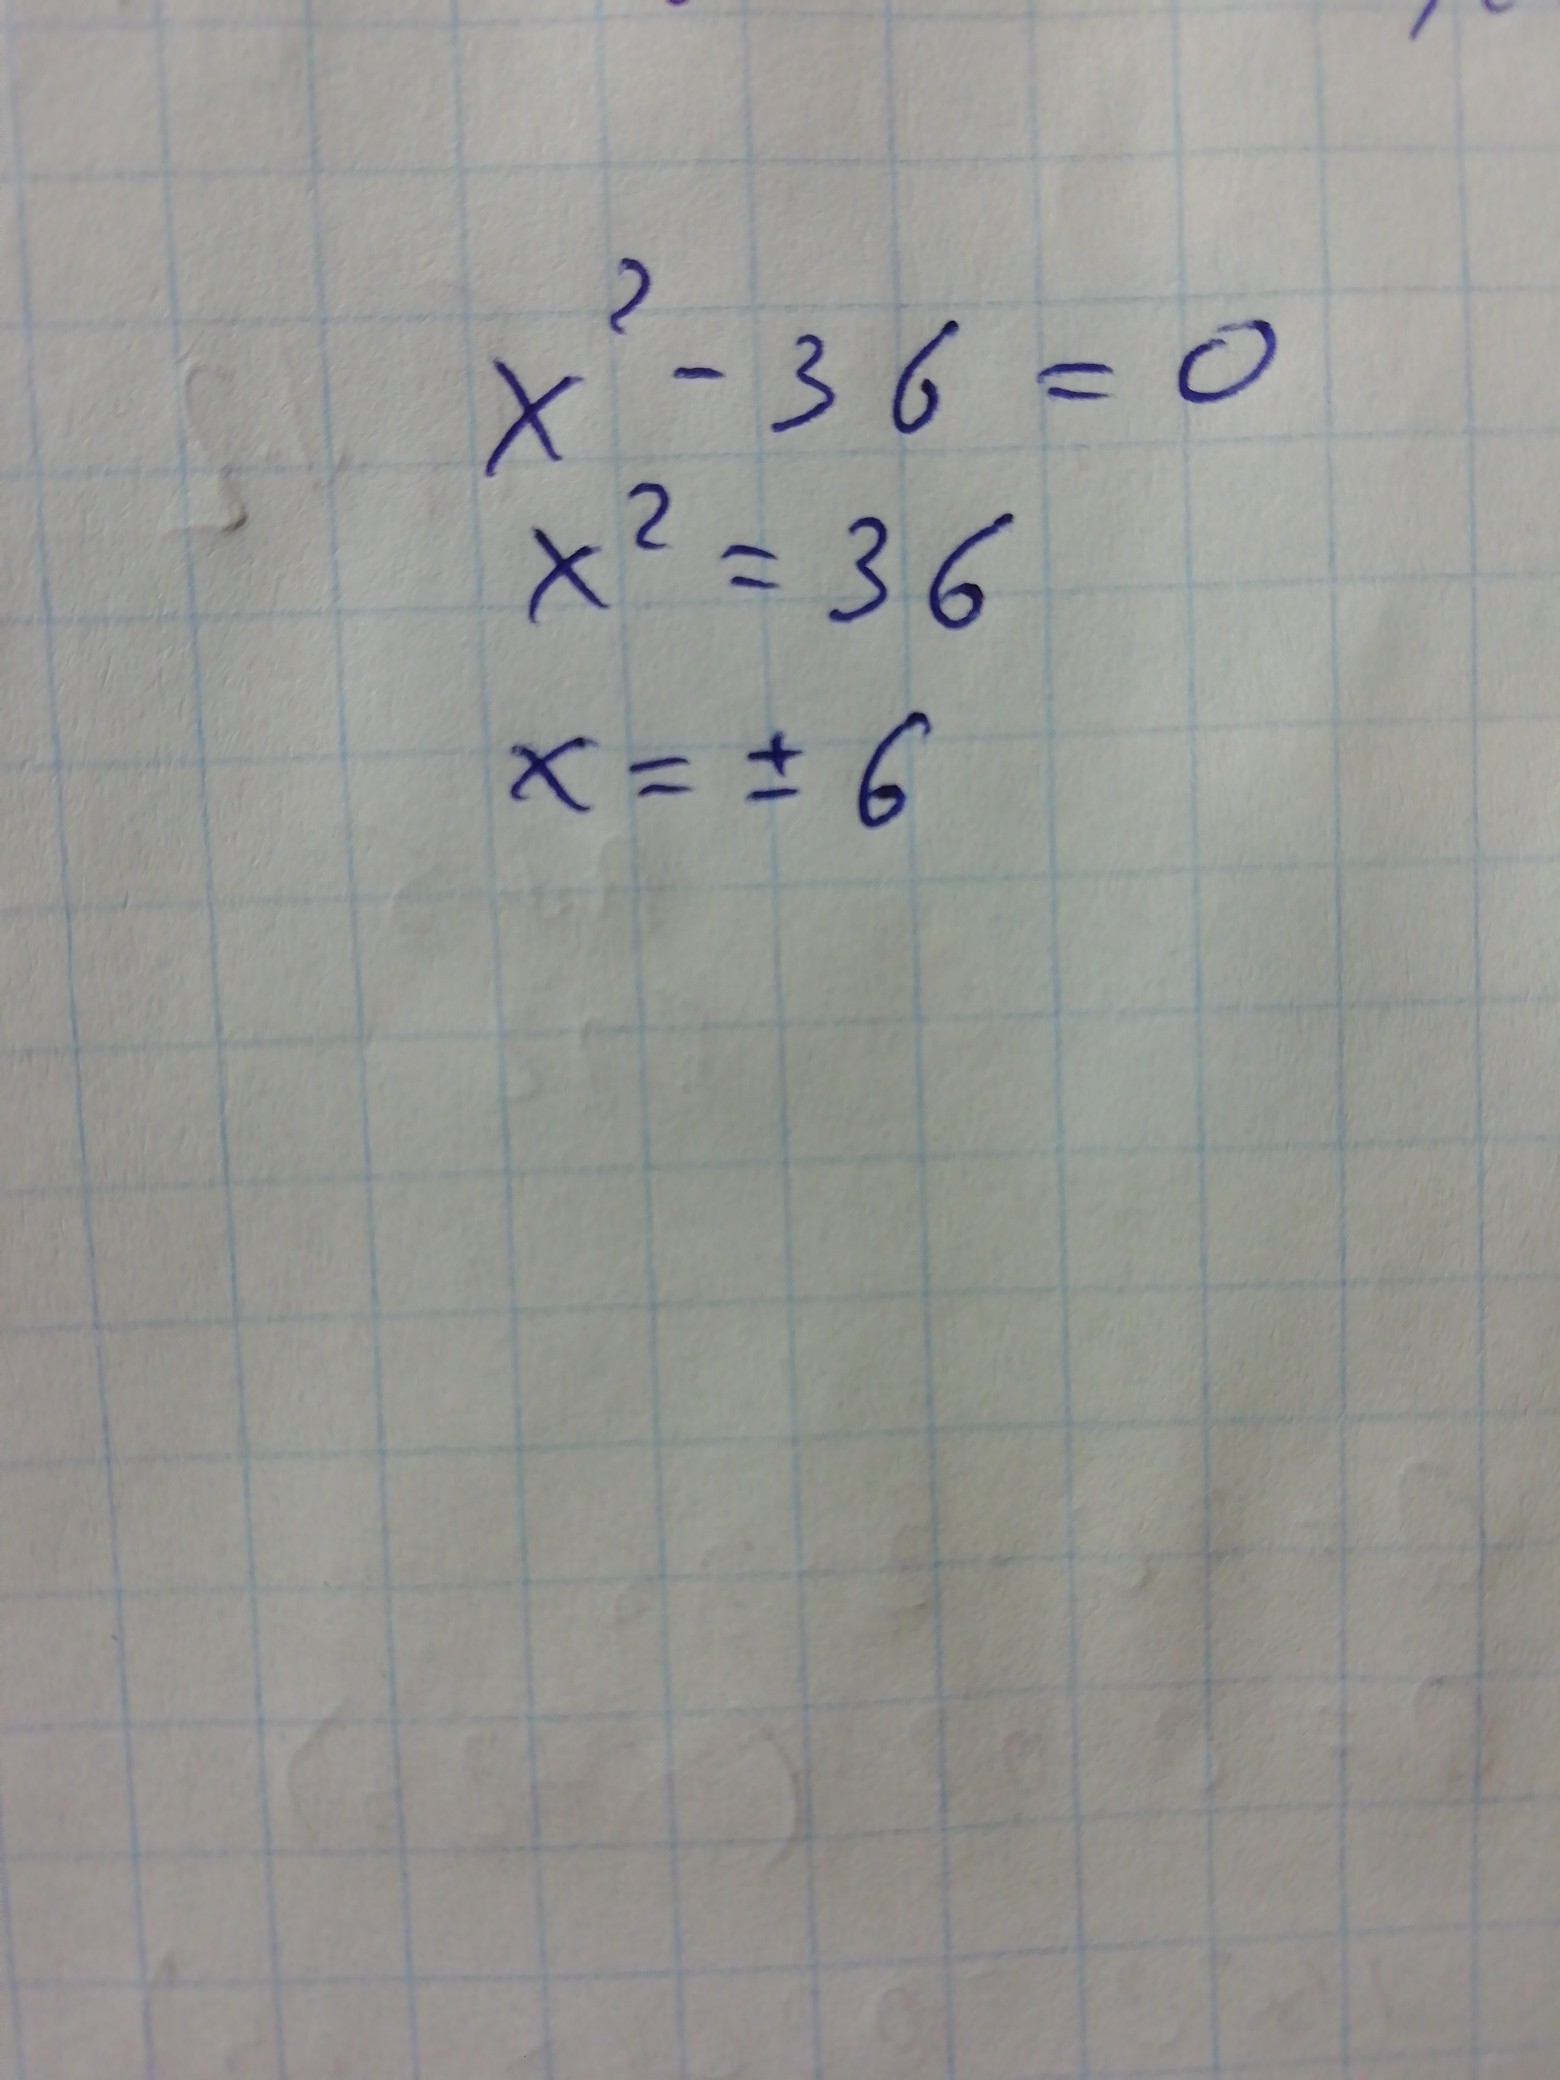 x² - 36 = 0
x² = 36
x = ± 6